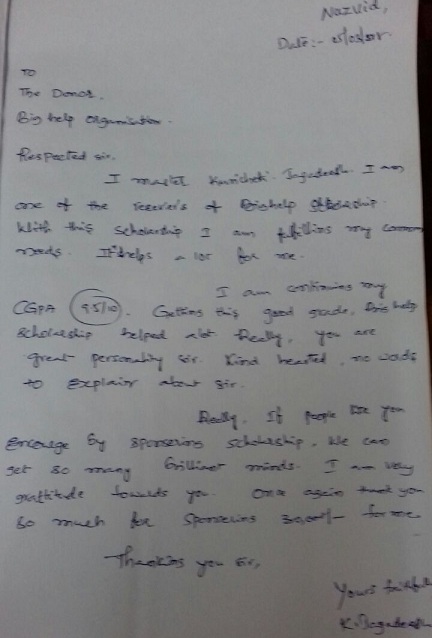 Nuzvid,
Date:-
TO
The Donor.
Big help Organisation.
Respected sir.
I master Kuricheti. Jagadeesh. I am
one of the receivers of Bighelp
With this scholarship I am fulfilling my common
needs. It helps a lot for me.
I am continuing my
CGPA 9.5/10. Getting this good grade, this help
scholarship helped alot Really, you are
great personality sir. Kind hearted, no words
to explain about sir.
Really, If people like you
encourage by sponsering scholarship. We can
get so many brilliant minds. I am very
grattitude towards you. Once again thank you
so much for sponsering for me
Thanking you sir,
Yours faithful
K. Jagadeesh